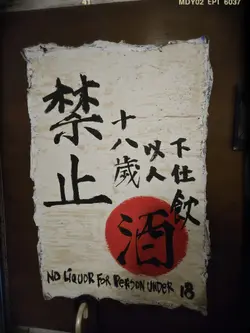 41
MDY02 EPT 6037
禁止
十八歲
以人
下仕飲
酒
NO LIQUOR FOR PERSON UNDER 18